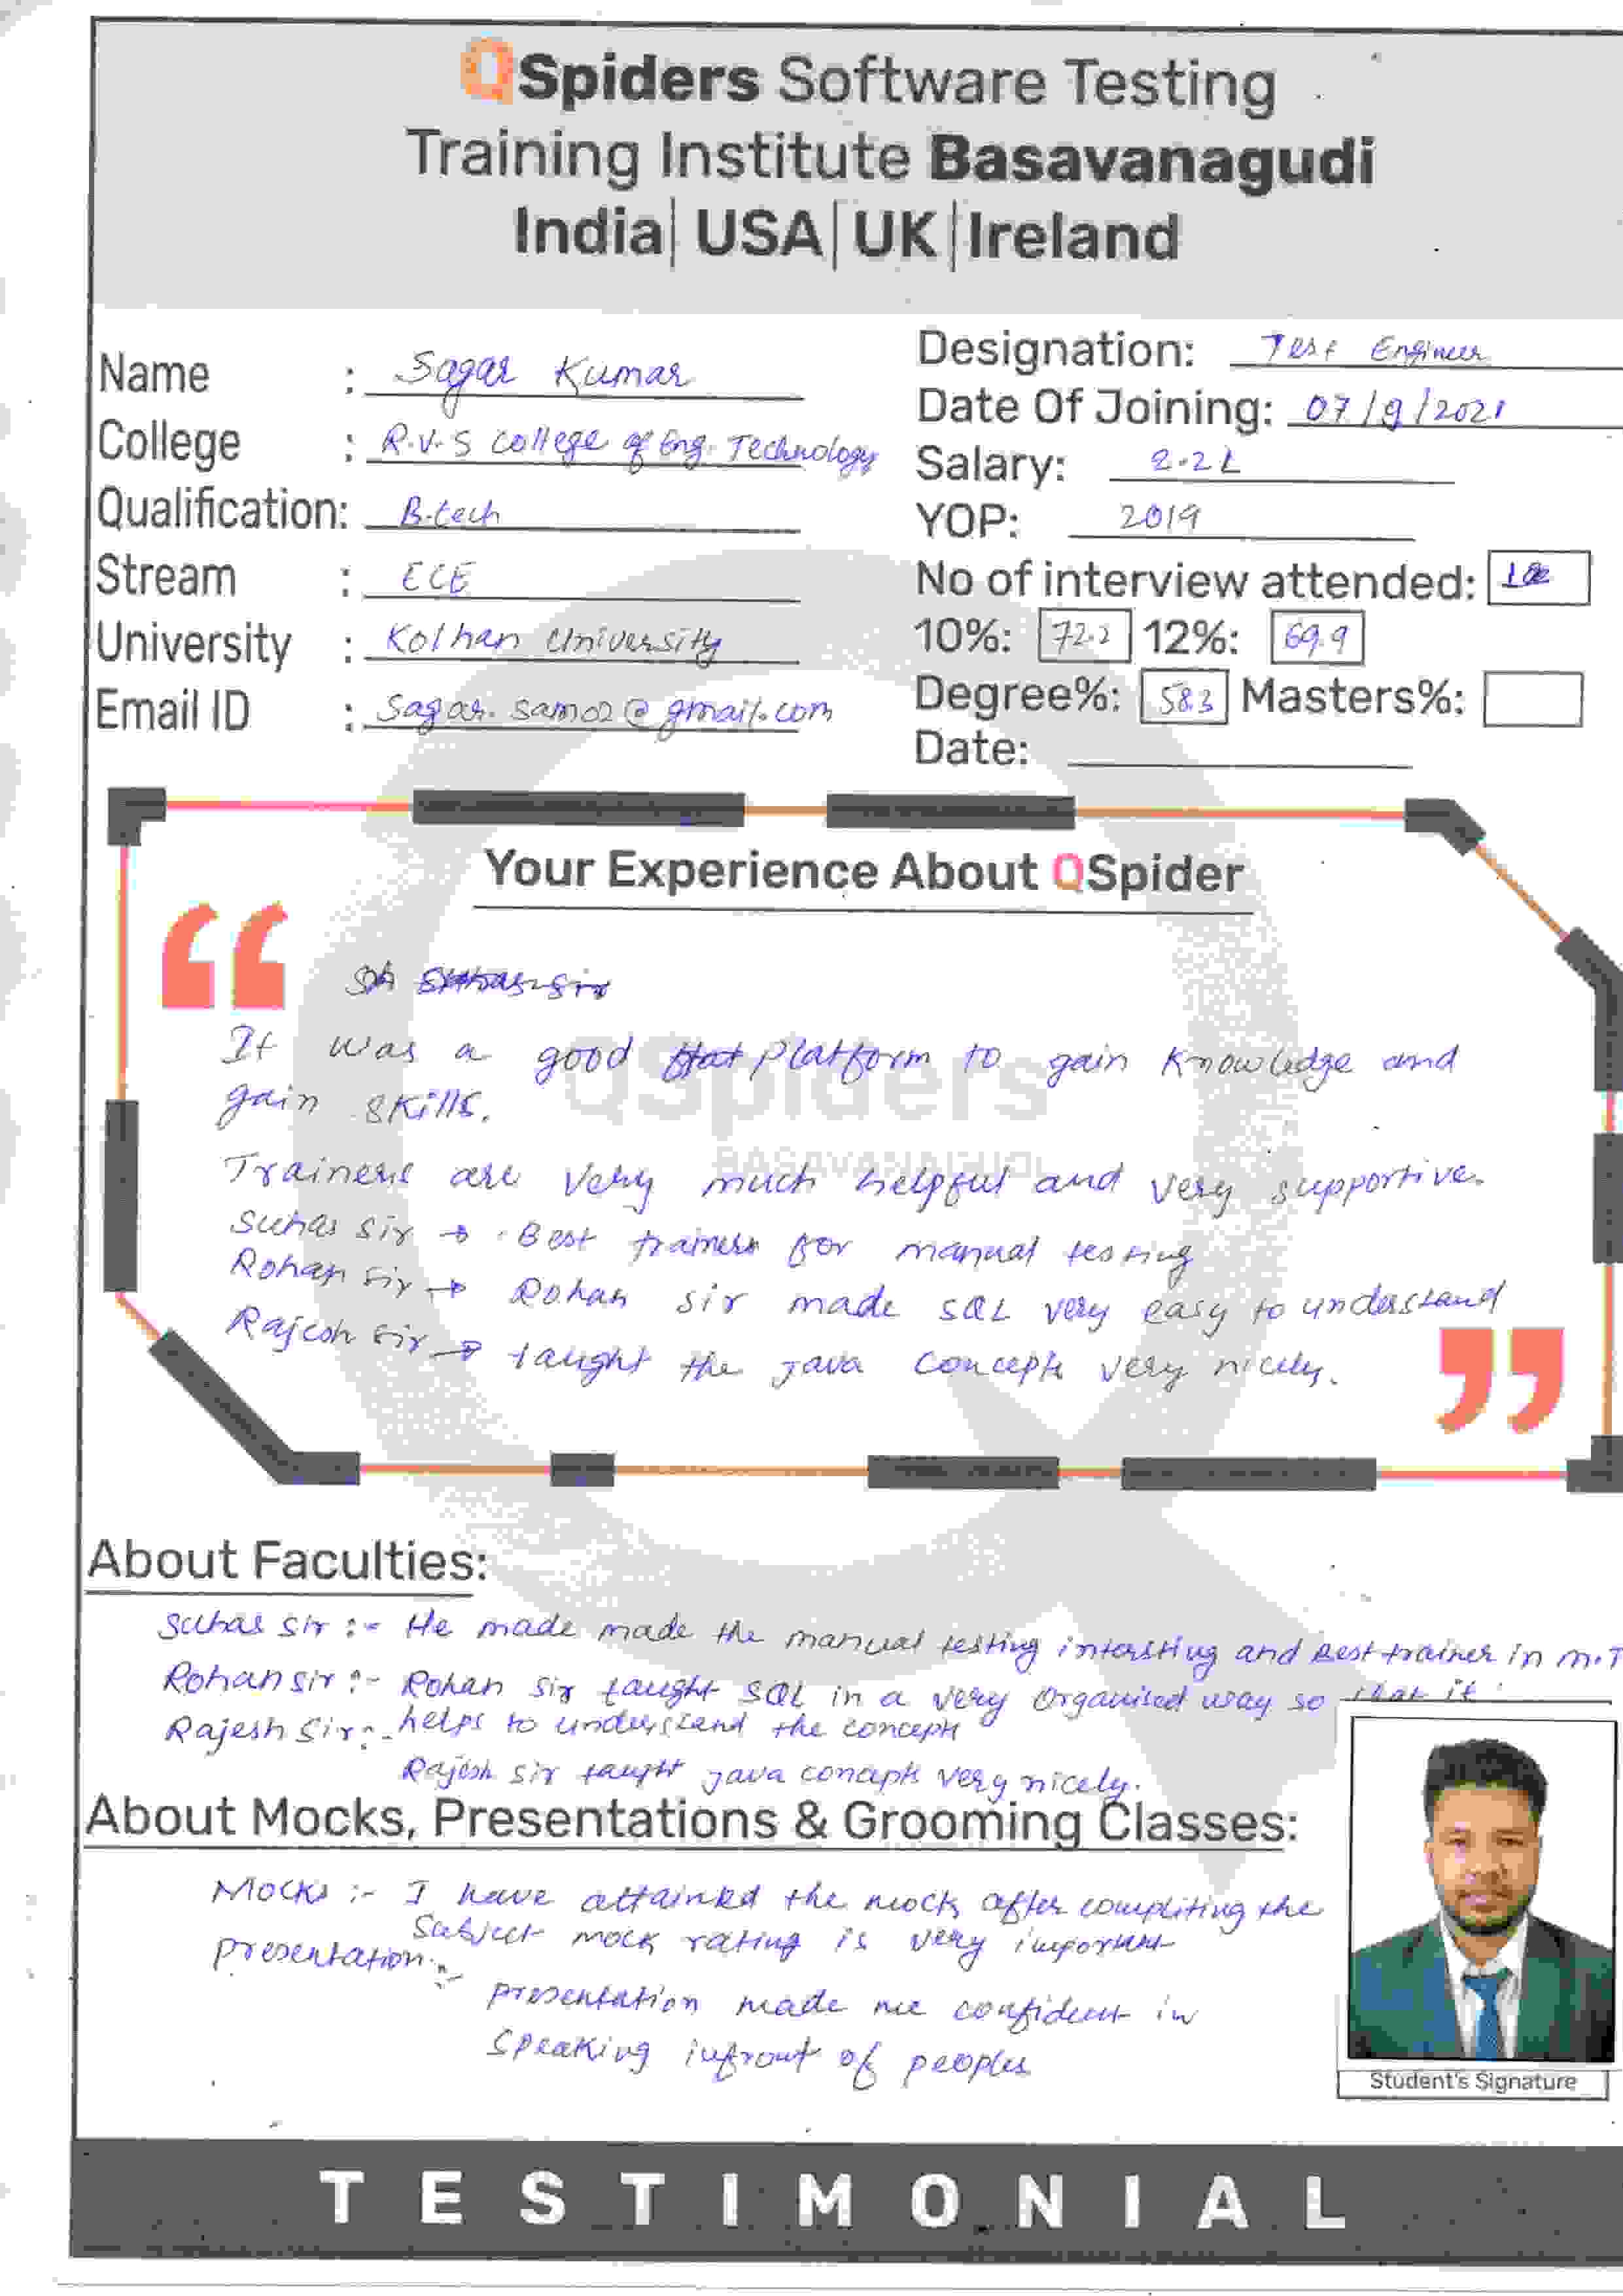 QSpiders Software Testing
Training Institute Basavanagudi
India| USA| UK |Ireland
Name : Sagar Kumar
College : R.V.S College of Eng. Technology
Qualification: B.tech
Stream : ECE
University : Kolhan University
Email ID : Sagar.sam02@gmail.com
Designation: Test Engineer
Date Of Joining: 07/9/2021
Salary: 2.2L
YOP: 2019
No of interview attended:
10%: 72.2 12%: 69.9
Degree%: 58.3 Masters%:
Date:
Your Experience About QSpider
“
It was a good platform to gain Knowledge and
gain skills.
QSpiders
BASAVANAGUDI
Trainers are very much helpful and very supportive.
Suhas Sir → Best trainer for manual testing
Rohan Sir → Rohan sir made SQL very easy to understand
Rajesh Sir → taught the java concepts very nicely.
”
About Faculties:
Suhas Sir :- He made made the manual testing intersting and Best trainer in M.T
Rohan sir :- Rohan sir taught SQL in a very Organised way so that it
helps to understand the concepts
Rajesh Sir:-
Rajesh sir taught java concepts very nicely.
About Mocks, Presentations & Grooming Classes:
Mocks :- I have attained the mock after compliting the
Subject mock rating is very important
presentation :-
presentation made me confident in
speaking infront of peoples
Student's Signature
TESTIMONIAL